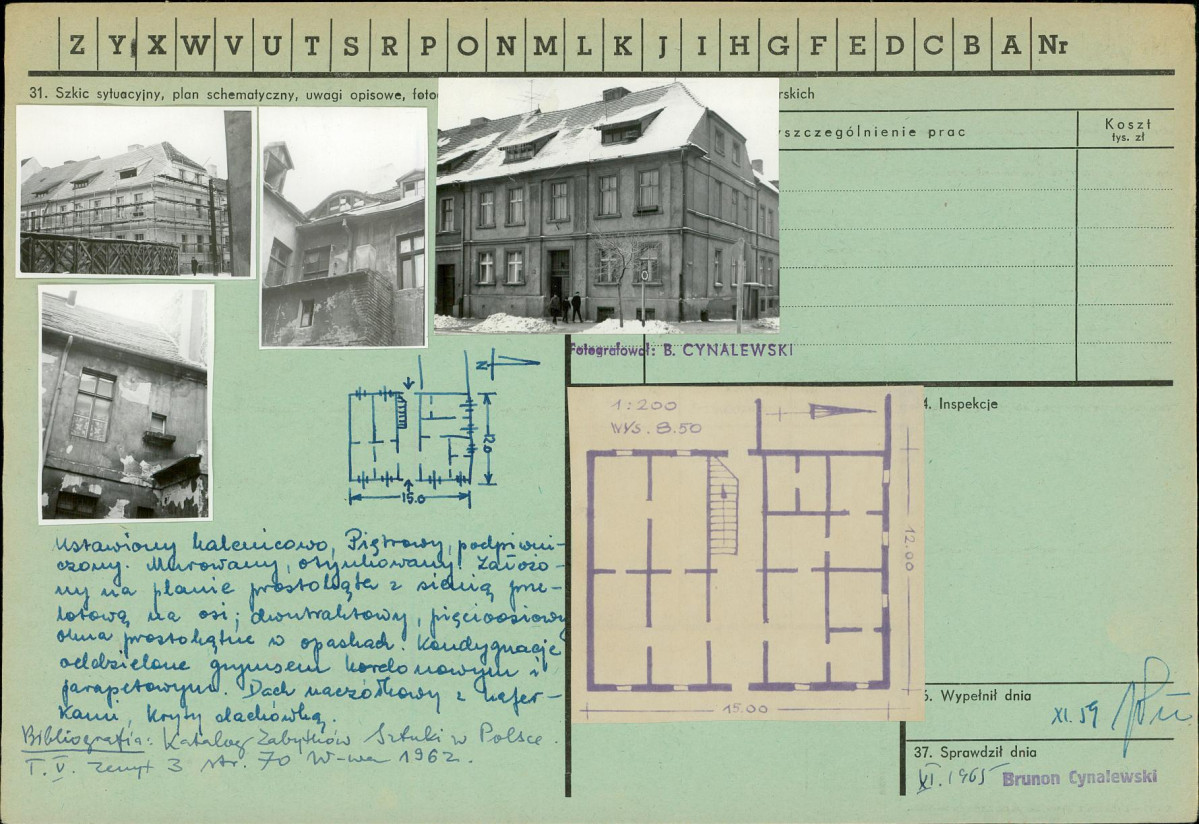 Z Y X W V U T S R P O N M L K J I H G F E D C B A Nr
31. Szkic sytuacyjny, plan schematyczny, uwagi opisowe, foto
rskich
yszczególnienie prac
Koszt
tys. zł
Fotografował: B. CYNALEWSKI
N
12.0
15.0
1:200
WYS. 8.50
12.00
15.00
4. Inspekcje
Ustawiony kalenicowo, Piętrowy, podpiwni-
czony. Murowany, otynkowany. Założo-
ny na planie prostokąta z sienią prze-
lotową na osi; dwutraktowy, pięcioosiowy
okna prostokątne w opaskach. Kondygnacje
oddzielone gzymsem kordonowym i
parapetowym. Dach naczółkowy z wafer-
kami, kryty dachówką.
Bibliografia: Katalog Zabytków Sztuki w Polsce.
T. V. zeszyt 3 str. 70 W-wa 1962.
6. Wypełnił dnia
XI.59
37. Sprawdził dnia
XI.1965 Brunon Cynalewski